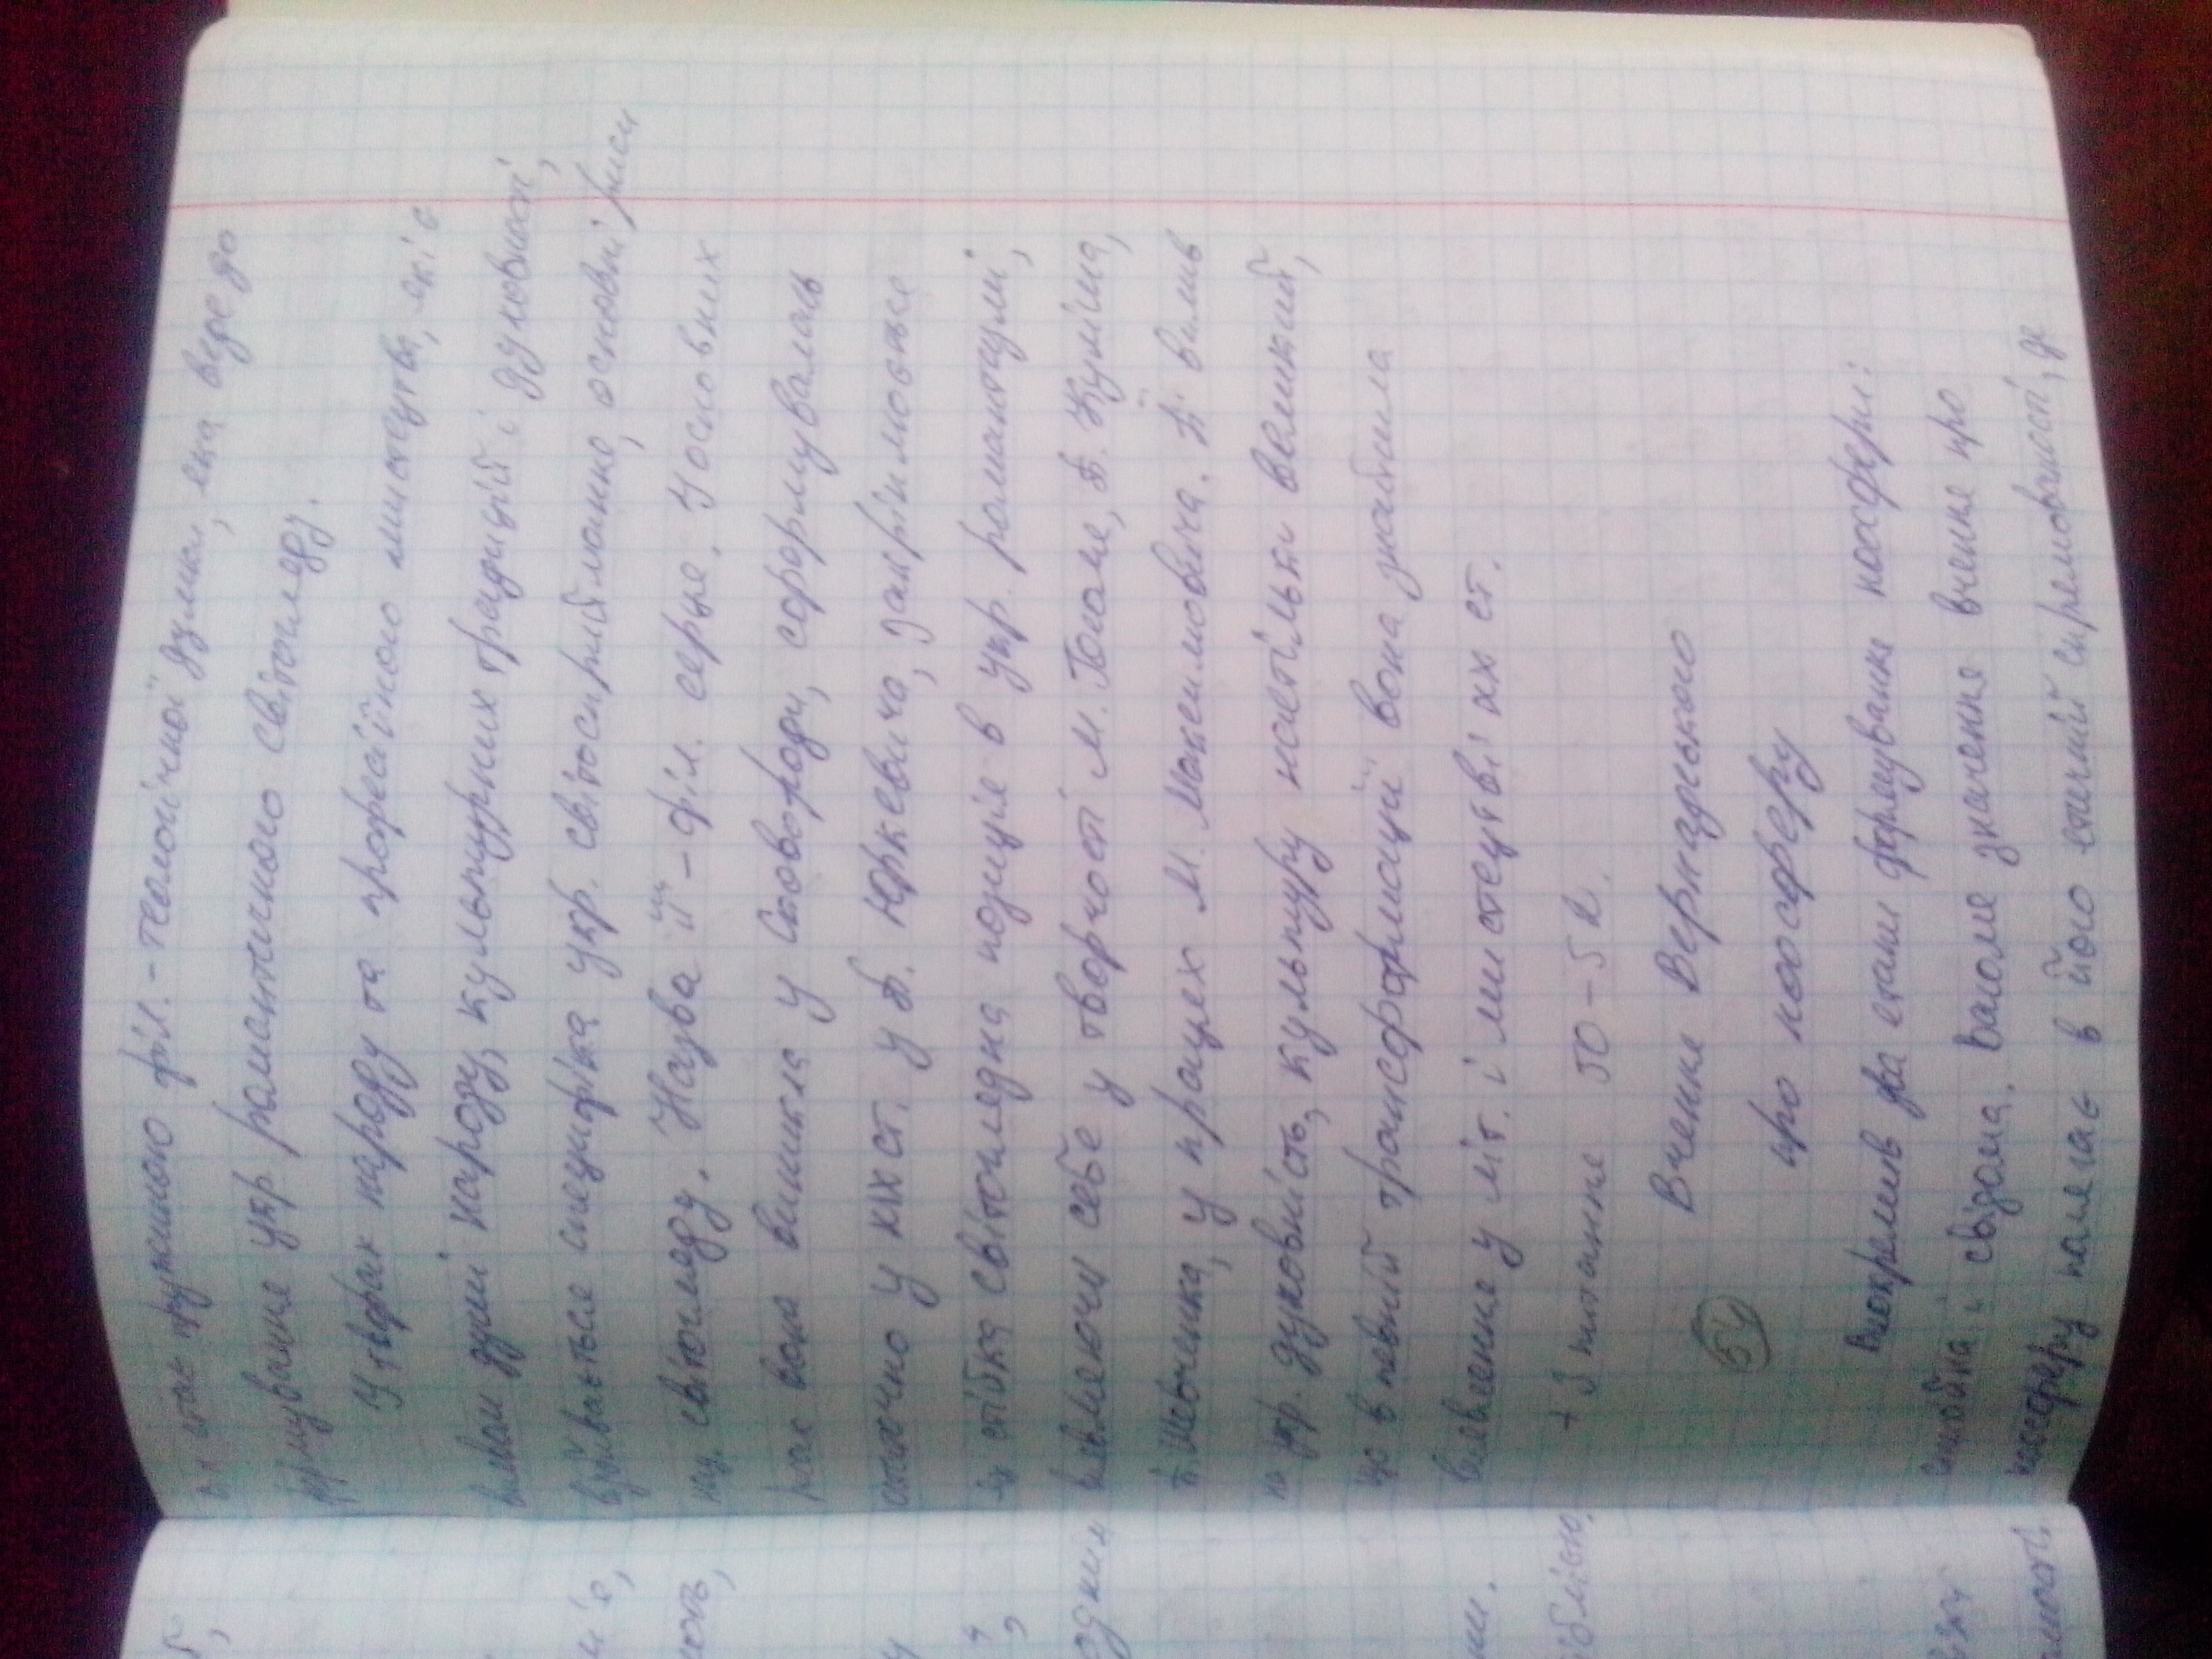 стає пружиною філ.-теологічної думки, яка веде до
формування укр. романтичного світогляду.
У творах народу та професійного мистецтва, які є
виявом душі народу, культурних традицій і духовності,
відбивається специфіка укр. світосприймання, основні риси
нац. світогляду. Назва її - філ. серця. У основних
рисах вона виникла у Сковороди, сформувалась
остаточно у ХІХ ст. у П. Юркевича, закріплюється
як стійка світоглядна позиція в укр. романтизмі,
виявляючи себе у творчості М. Гоголя, П. Куліша,
Т. Шевченка, у працях М. Максимовича. Її вплив
на укр. духовність, культуру настільки великий,
що в певній трансформації вона знайшла
виявлення у літ. і мистецтві ХХ ст.
+ 3 питання 50-52.
Вчення Вернадського
54
про ноосферу
Виокремив два етапи формування ноосфери:
стихійна і свідома. Вагоме значення вчення про
ноосферу полягає в його етичній спрямованості, де